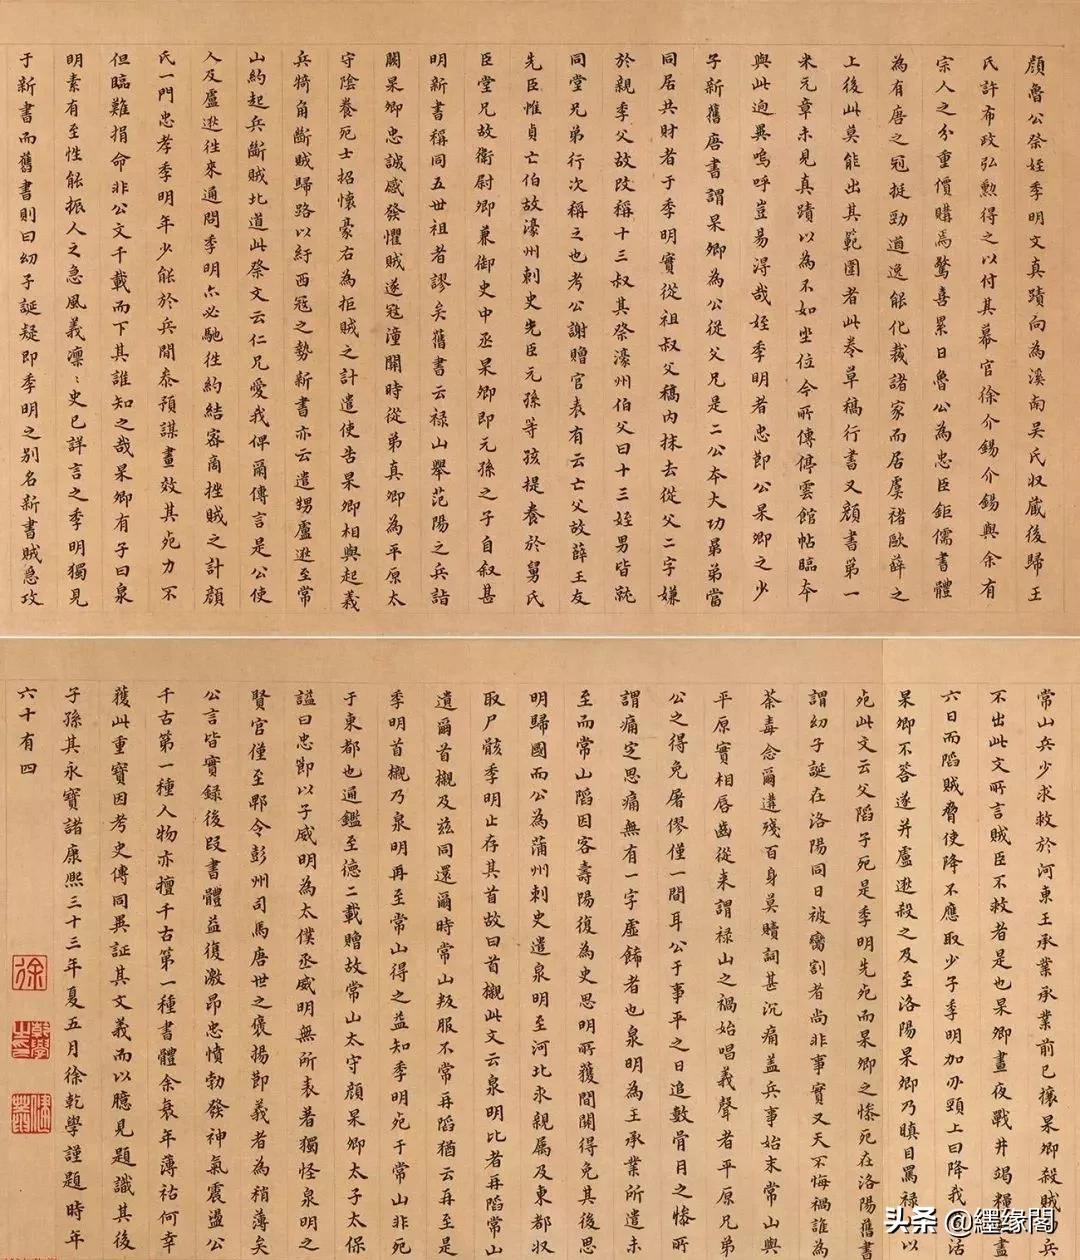 顏魯公祭姪季明文真蹟向為溪南吳氏收藏後歸王
氏許布政弘勲得之以付其幕官徐介錫介錫與余有
宗人之分重價購焉驚喜累日魯公為忠臣鉅儒書體
為有唐之冠挺勁遒逸能化裁諸家而居虞褚歐薛之
上後此莫能出其範圍者此卷草稿行書又顏書第一
米元章未見真蹟以為不如坐位今所傳停雲館帖臨本
與此逈異嗚呼豈易得哉姪季明者忠節公杲卿之少
子新舊唐書謂杲卿為公從父兄是二公本大功弟弟當
同居共財者于季明實從祖叔父稿內抹去從父二字嫌
於親季父故改稱十三叔其祭濠州伯父曰十三姪男皆就
同堂兄弟行次稱之也考公謝贈官表有云亡父故薛王友
先臣惟貞亡伯故濠州刺史先臣元孫等孩提養於舅氏
臣堂兄故衛尉卿兼御史中丞杲卿即元孫之子自叙甚
明新書稱同五世祖者謬矣舊書云禄山舉范陽之兵詣
闕杲卿忠誠感發懼賊遂寇潼關時從弟真卿為平原太
守陰養死士招懷豪右為拒賊之計遣使告杲卿相與起義
兵犄角斷賊歸路以紓西寇之勢新書亦云遣甥盧逖至常
山約起兵斷賊北道此祭文云仁兄愛我俾爾傳言是公使
人及盧逖往來通問季明亦必馳往約結密商挫賊之計顏
氏一門忠孝季明年少能於兵間泰預謀畫效其死力不
但臨難捐命非公文千載而下其誰知之哉杲卿有子曰泉
明素有至性能振人之急風義凛〻史已詳言之季明獨見
于新書而舊書則曰幼子誕疑即季明之别名新書賊急攻
常山兵少求救於河東王承業承業前已攘杲卿殺賊
兵
不出此文所言賊臣不救者是也杲卿晝夜戰井竭糧
盡
六日而陷賊脅使降不應取少子季明加刃頸上曰降我
活
杲卿不答遂并盧逖殺之及至洛陽杲卿乃瞋目罵禄
以
死此文云父陷子死是季明先死而杲卿之慘死在洛陽舊書
謂幼子誕在洛陽同日被臠割者尚非事實又天不悔禍誰為
荼毒念爾遘殘百身莫贖詞甚沉痛盖兵事始末常山與
平原實相唇齒從来謂禄山之禍始唱義聲者平原兄弟
公之得免屠僇僅一間耳公于事平之日追數骨月之慘所
謂痛定思痛無有一字虛餙者也泉明為王承業所遣未
至而常山陷因客壽陽復為史思明所獲間關得免其後思
明歸國而公為蒲州刺史遣泉明至河北求親属及東都收
取尸骸季明止存其首故曰首櫬此文云泉明比者再陷常山
遺爾首櫬及茲同還爾時常山叛服不常再陷猶云再至是
季明首櫬乃泉明再至常山得之益知季明死于常山非死
于東都也通鑑至德二載贈故常山太守顏杲卿太子太保
謚曰忠節以子威明為太僕丞威明無所表著獨怪泉明之
賢官僅至郫令彭州司馬唐世之褒揚節義者為稍薄矣
公言皆實録後段書體益復激昂忠憤勃發神氣震盪公
千古第一種人物亦擅千古第一種書體余衰年薄祜何幸
獲此重寶因考史傳同異証其文義而以臆見題識其後
子孫其永寶諸康熙三十三年夏五月徐乾學謹題時年
六十有四
徐
乾學
之印
健菴
头条 @纆缘阁